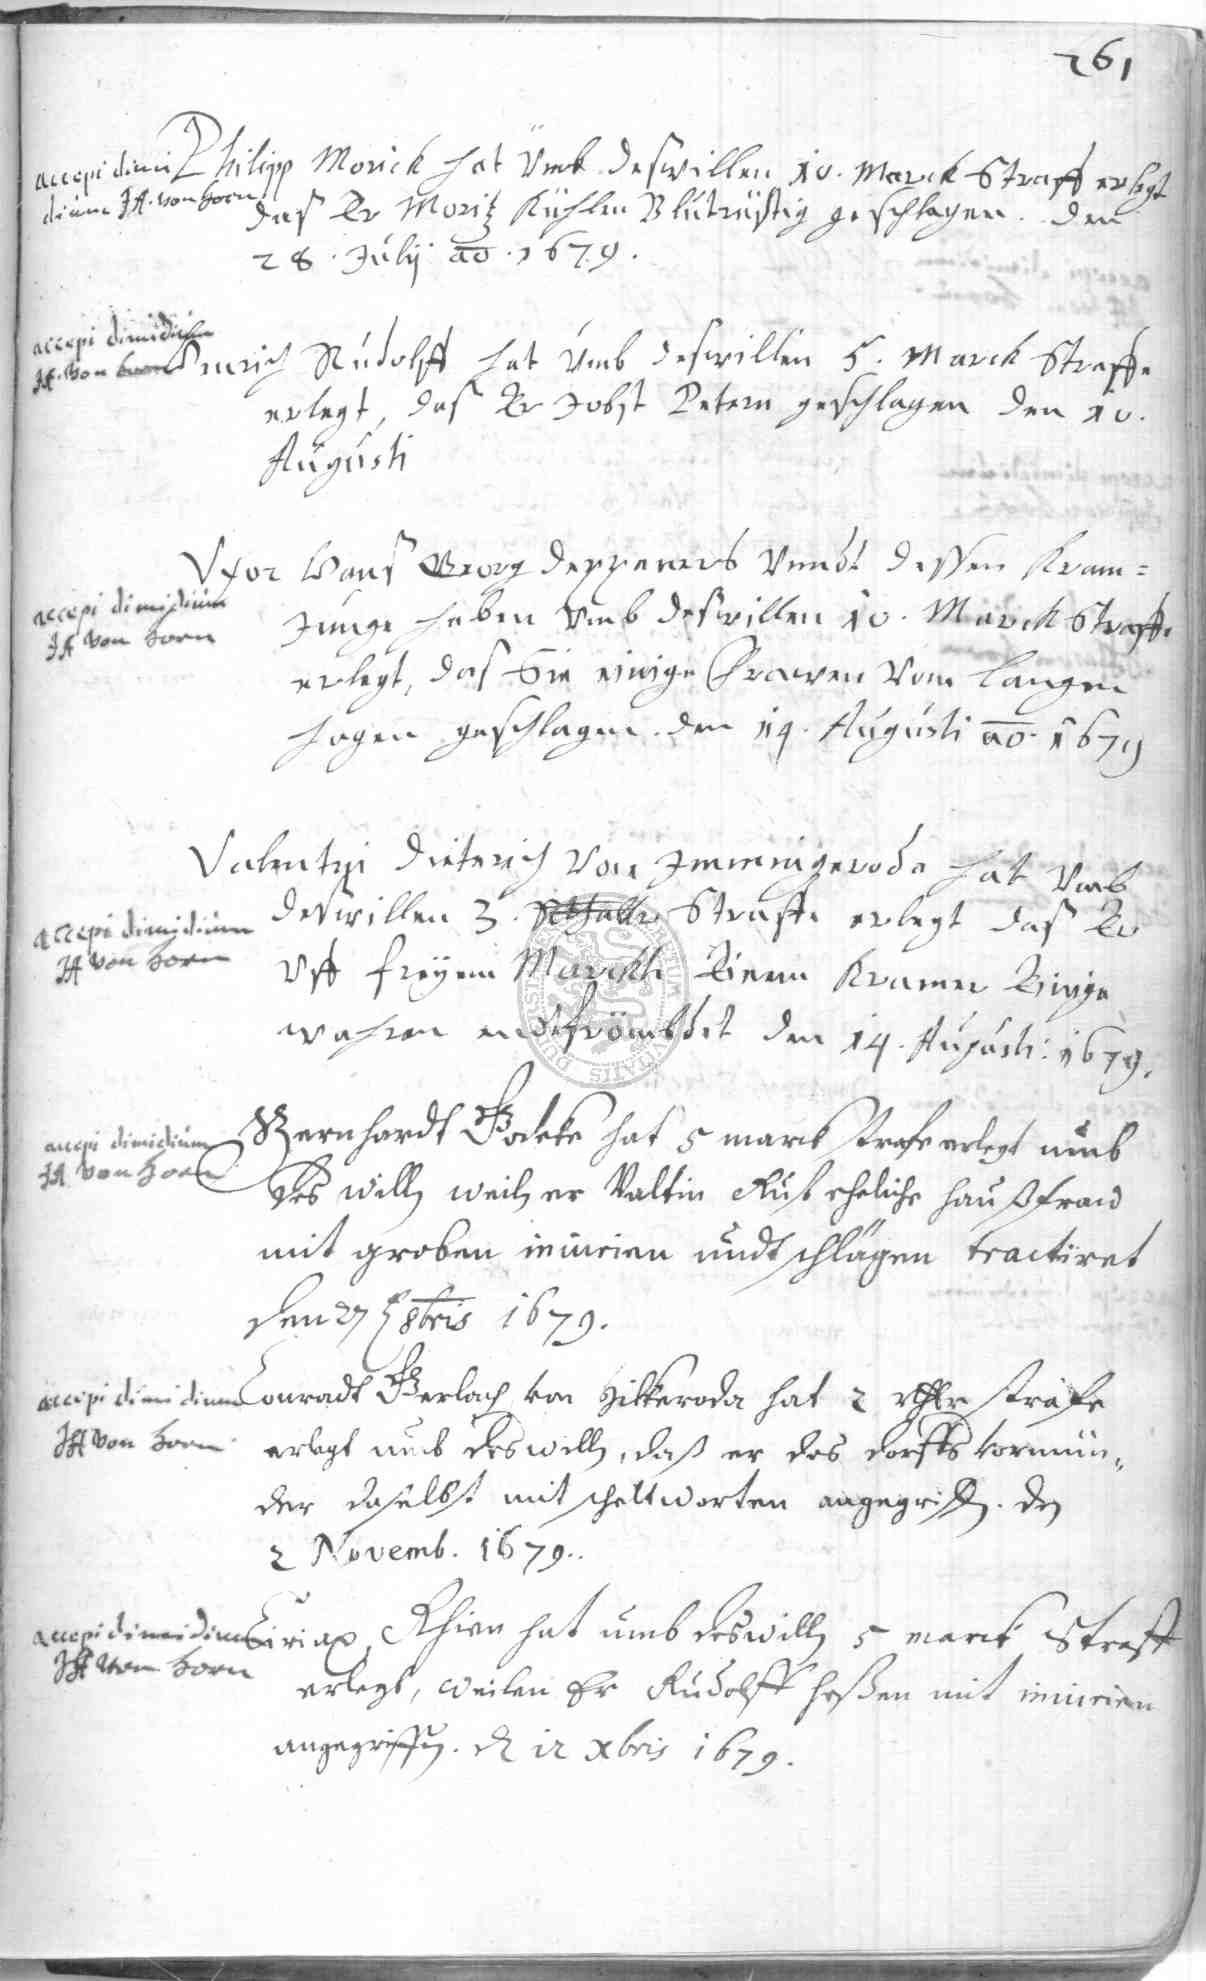 261
accepi dimi
dium JH. von Horn
Philipp Morick hat Vmb deswillen 10. Marck Straff erlegt
das Er Moritz Kühlen Blutrüstig geschlagen. den
28. Julij ao. 1679.
accepi dimidium
JH. von Horn
Henrich Rudolff hat Vmb deswillen 5. Marck Straffe
erlegt, das Er Jobst Petern geschlagen den 10.
Augusti
accepi dimidium
JH von Horn
Hans Georg Deppeners Vnndt dessen Kram=
Junge haben Vmb deswillen 10. Marck Straffe
erlegt, das Sie einige Frawen Vom Langen
hagen geschlagen. den 14. Augusti ao. 1679
accepi dimidium
JH von Horn
Valentin Dieterich Von Immingeroda hat Vmb
deswillen 3. Rthaller Straffe erlegt das Er
Vff freyem Marckh Einem Kramer Einige
wahren endtfrömbdet den 14. Augusti: 1679.
accepi dimidium
JH von Horn
Bernhardt Godeke hat 5 marck strafe erlegt umb
des willen weil er Valtin Ruß eheliche haußfraw
mit groben iniurien undt schlägen tractiret
den 27 8bris 1679.
accepi dimidium
JH von Horn
Conradt Gerlach von Hilkeroda hat 2 rthlr strafe
erlegt umb deswillen, daß er des dorffs vormün=
der daselbst mit scheltworten angegriffen. den
2 Novemb. 1679.
accepi dimidium
JH von Horn
Ciriax Rhien hat umb deswillen 5 marck Straff
erlegt, weilen Er Rudolff heßen mit iniurien
angegriffen. d 12 xbris 1679.